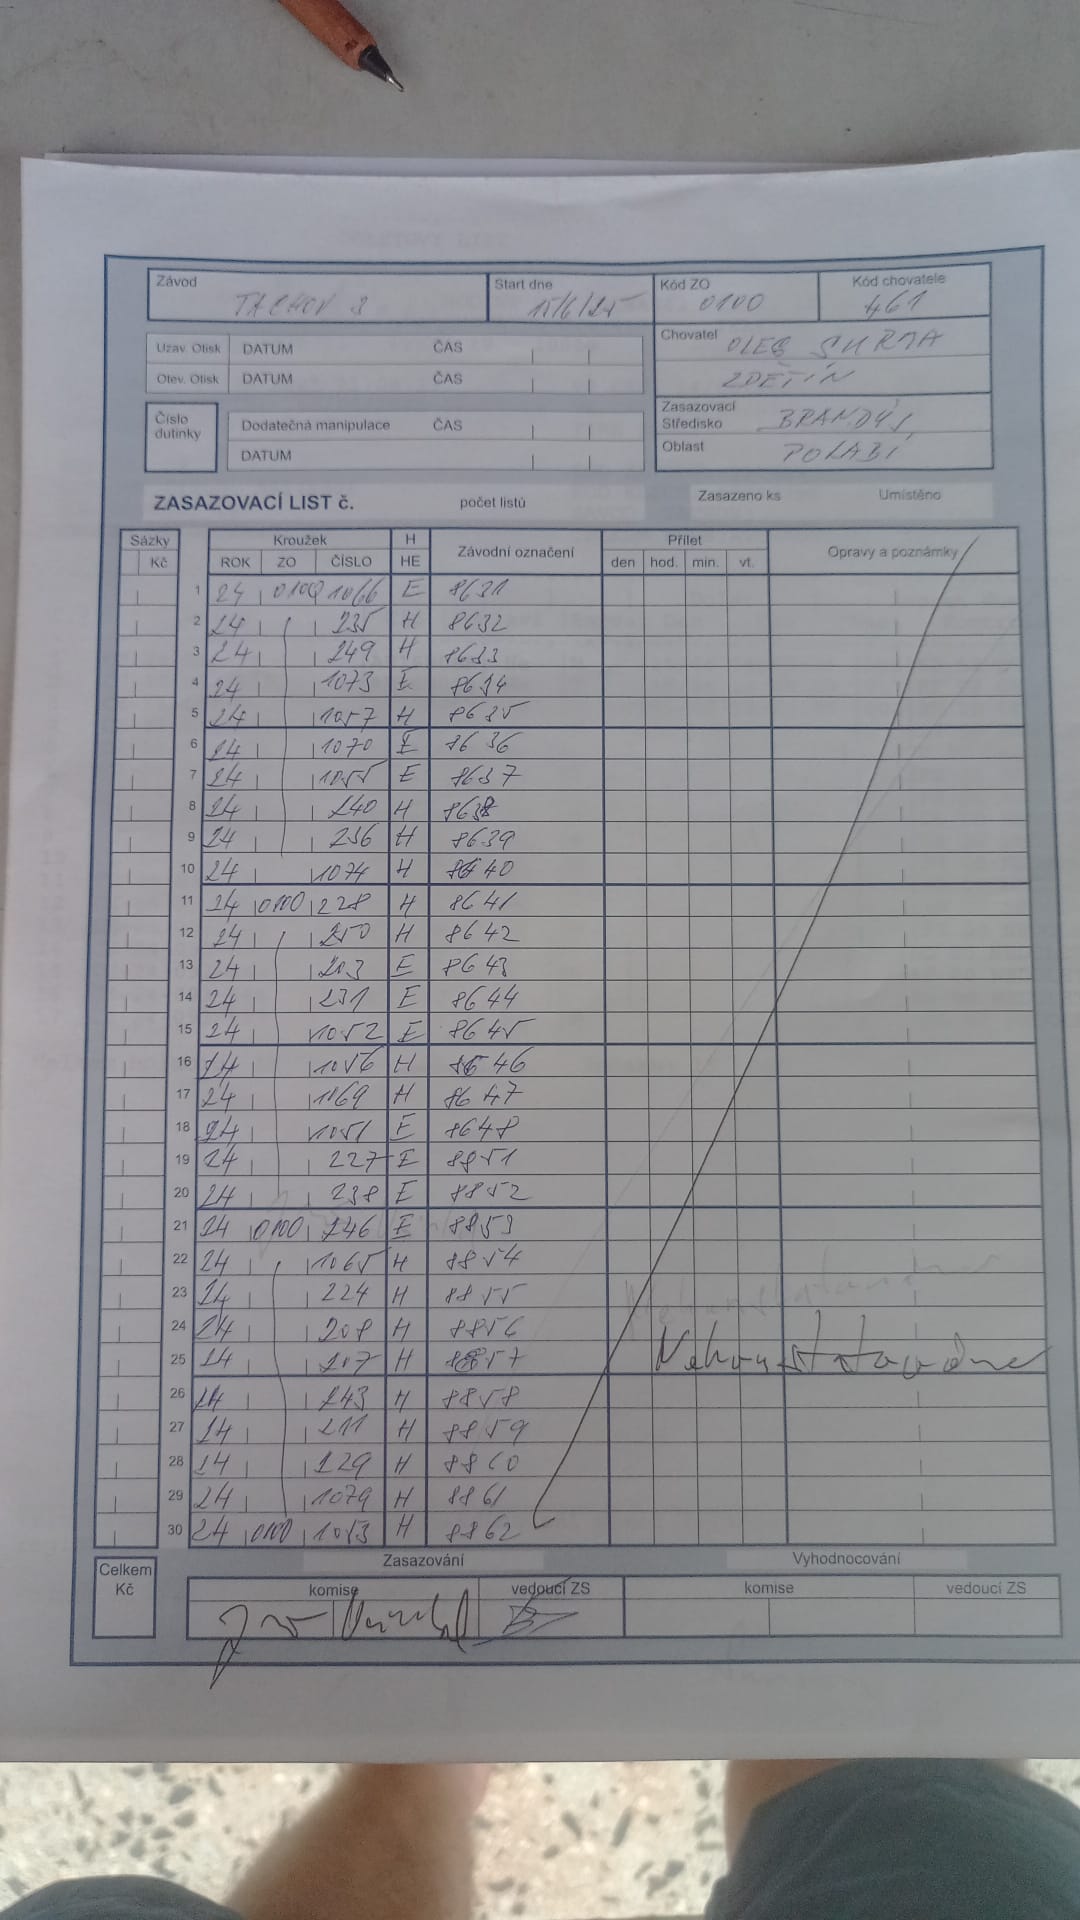 Závod Start dne Kód ZO Kód chovatele
TACHOV 3 15/6/25 0100 461
Chovatel OLEG ŠURJA
ZDĚTÍN
Uzav. Otisk DATUM ČAS
Otev. Otisk DATUM ČAS
Zasazovací Středisko BRANDÝS
Oblast POLABÍ
Číslo dutinky
Dodatečná manipulace ČAS
DATUM
ZASAZOVACÍ LIST č. počet listů Zasazeno ks Umístěno
Sázky Kroužek H Závodní označení Přílet Opravy a poznámky
Kč ROK ZO ČÍSLO HE den hod. min. vt.
1 24 0100 1066 E 8631
2 24 235 H 8632
3 24 249 H 8633
4 24 1073 E 8634
5 24 1057 H 8635
6 24 1070 E 8636
7 24 1055 E 8637
8 24 240 H 8638
9 24 236 H 8639
10 24 1074 H 8640
11 24 0100 228 H 8641
12 24 250 H 8642
13 24 203 E 8643
14 24 231 E 8644
15 24 1052 E 8645
16 24 1056 H 8646
17 24 1069 H 8647
18 24 1051 E 8648
19 24 227 E 8851
20 24 238 E 8852
21 24 0100 246 E 8853
22 24 1065 H 8854
23 24 224 H 8855
24 24 208 H 8856
25 24 207 H 8857
26 24 243 H 8858
27 24 211 H 8859
28 24 229 H 8860
29 24 1079 H 8861
30 24 0100 1053 H 8862
Celkem Kč
Zasazování Vyhodnocování
komise vedoucí ZS komise vedoucí ZS